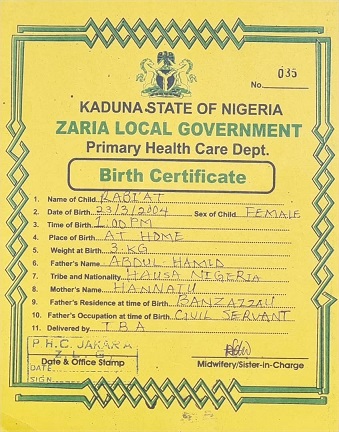 No. 035
KADUNA STATE OF NIGERIA
ZARIA LOCAL GOVERNMENT
Primary Health Care Dept.
Birth Certificate
1. Name of Child RABI'AT
2. Date of Birth 23/3/2004 Sex of Child FEMALE
3. Time of Birth 1.00PM
4. Place of Birth AT HOME
5. Weight at Birth 3.KG
6. Father's Name ABDUL HAMID
7. Tribe and Nationality HAUSA NIGERIA
8. Mother's Name HANNATU
9. Father's Residence at time of Birth BANZAZZAU
10. Father's Occupation at time of Birth CIVIL SERVANT
11. Delivered by TBA
P.H.C. JAKARA
Z.L.G
Date & Office Stamp
Midwifery/Sister-in-Charge
DATE
SIGN